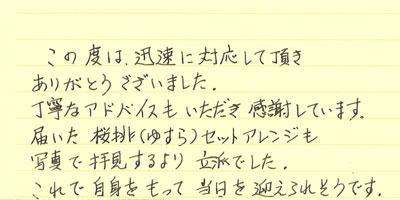 この度は、迅速に対応して頂き
ありがとうございました。
丁寧なアドバイスもいただき感謝しています。
届いた桜排(ゆすら)セットアレンジも
写真で拝見するより立派でした。
これで自身をもって当日を迎えられそうです。